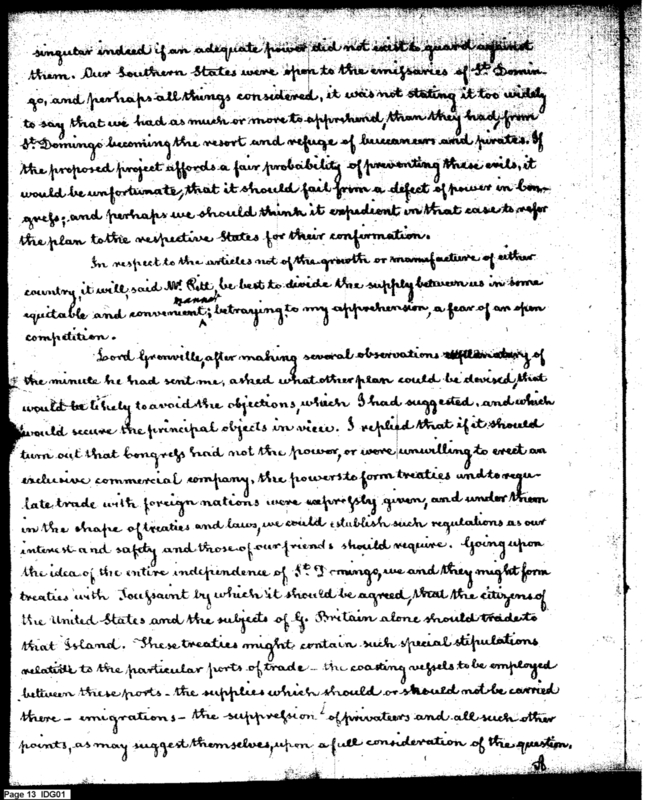 singular indeed if an adequate power did not exist to guard against
them. Our Southern States were open to the emissaries of St. Domin-
go, and perhaps all things considered, it was not stating it too widely
to say that we had as much or more to apprehend, than they had, from
St. Domingo becoming the resort and refuge of buccaneers and pirates. If
the proposed project affords a fair probability of preventing these evils, it
would be unfortunate, that it should fail from a defect of power in Con-
gress; and perhaps we should think it expedient in that case to refer
the plan to the respective States for their confirmation.
In respect to the articles not of the growth or manufacture of either
country, it will, said Mr. Pitt, be best to divide the supply between us in some
manner
equitable and convenient; betraying to my apprehension, a fear of an open
competition.
Lord Grenville, after making several observations explanatory of
the minute he had sent me, asked what other plan could be devised, that
would be likely to avoid the objections, which I had suggested, and which
would secure the principal objects in view. I replied that if it should
turn out that Congress had not the power, or were unwilling to erect an
exclusive commercial company, the powers to form treaties and to regu-
late trade with foreign nations were expressly given, and under them
in the shape of treaties and laws, we could establish such regulations as our
interest and safety and those of our friends should require. Going upon
the idea of the entire independence of St. Domingo, we and they might form
treaties with Toussaint by which it should be agreed, that the citizens of
the United States and the subjects of G. Britain alone should trade to
that Island. These treaties might contain such special stipulations
relative to the particular ports of trade - the coasting vessels to be employed
between these ports - the supplies which should or should not be carried
there - emigrations - the suppression of privateers and all such other
points, as may suggest themselves, upon a full consideration of the question.
A
Page 13 IDG01